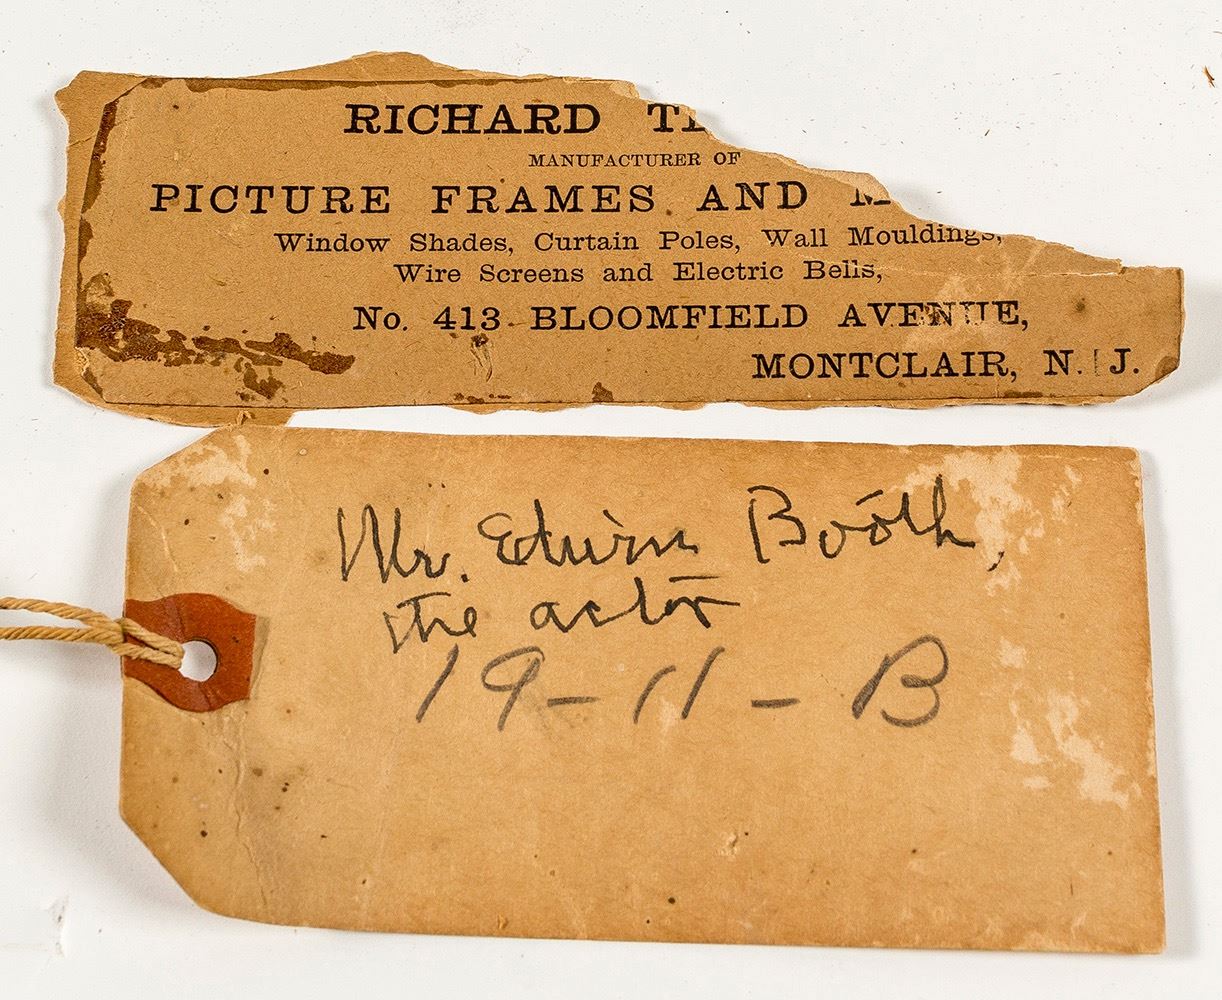 RICHARD
MANUFACTURER OF
PICTURE FRAMES AND
Window Shades, Curtain Poles, Wall Mouldings,
Wire Screens and Electric Bells,
No. 413 BLOOMFIELD AVENUE,
MONTCLAIR, N. J.
Mr. Edwin Booth,
the actor
19-11-B